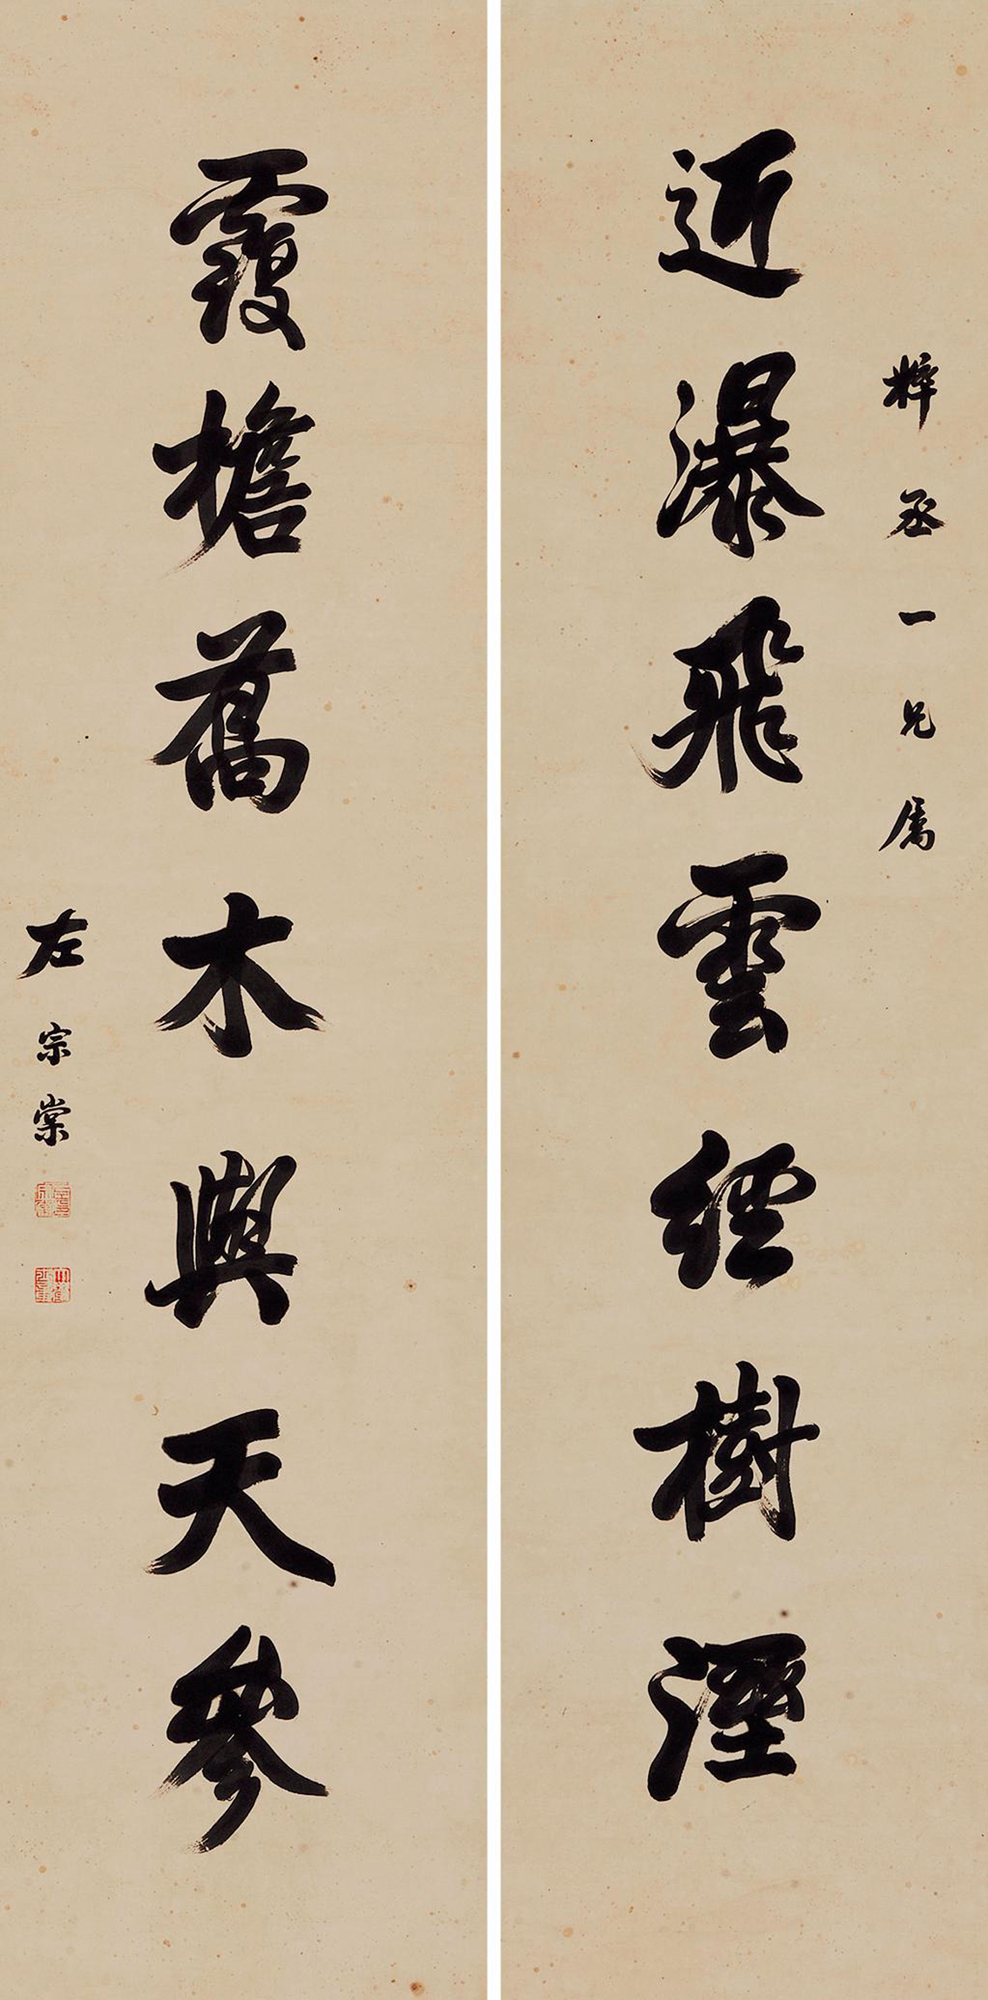 梓丞一兄属
近瀑飛雲經樹溼
霞檐舊木與天參
左宗棠